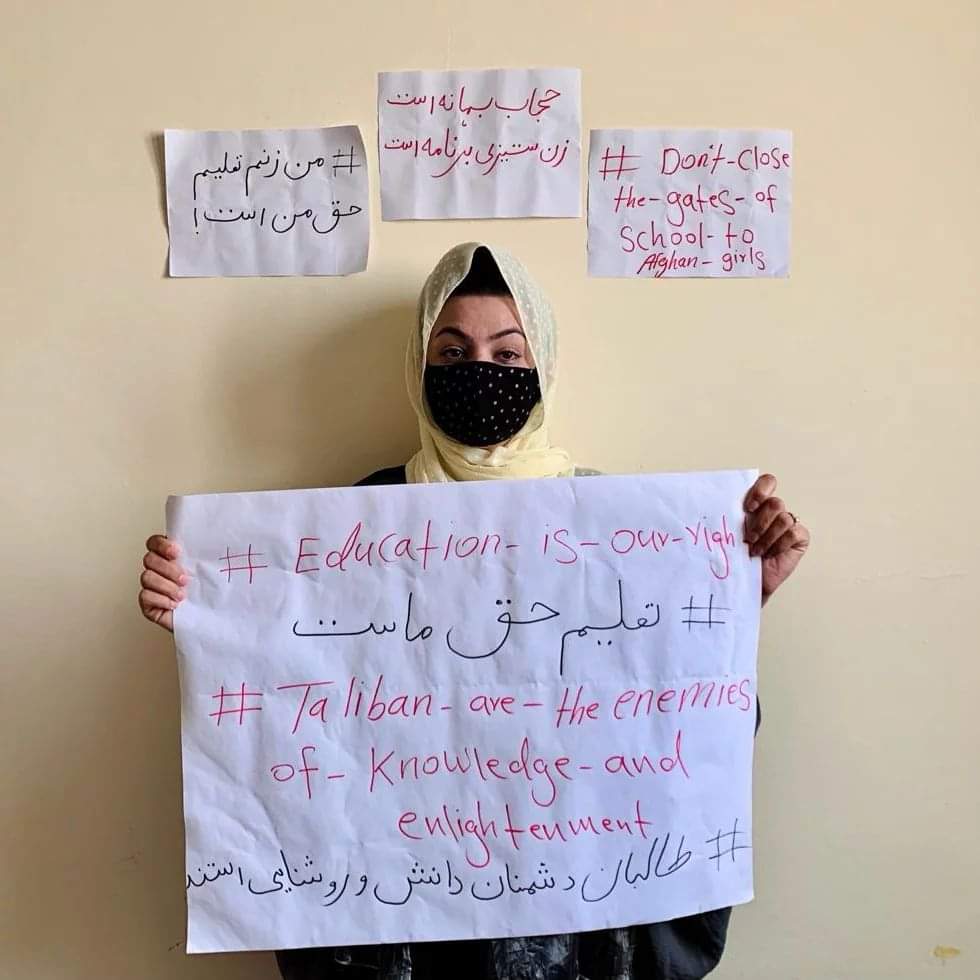 # من زنم تعلیم
حق من است!
حجاب بهانه است
زن ستیزی برنامه است
# Don't-close
the-gates-of
school-to
Afghan-girls
# Education-is-our-righ
# تعلیم حق ماست
# Taliban-are-the enemies
of-knowledge-and
enlightenment
# طالبان دشمنان دانش و روشنایی استند